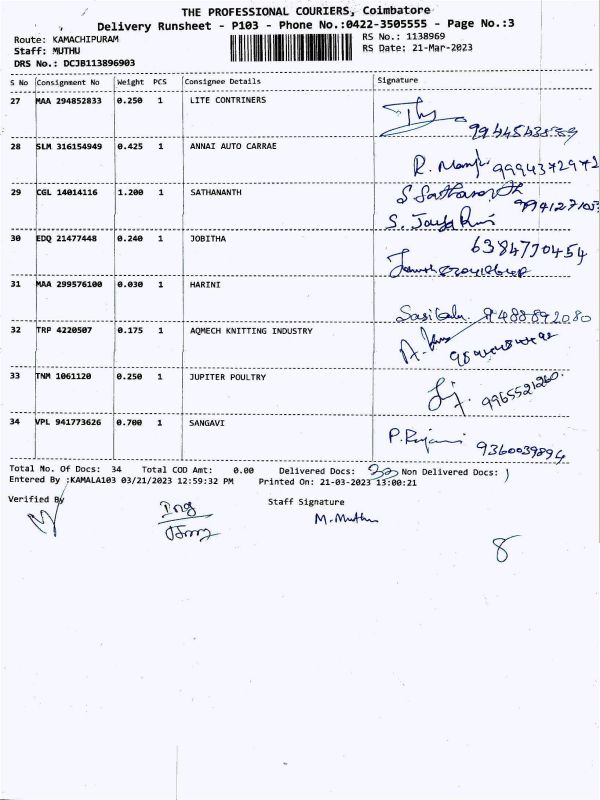 THE PROFESSIONAL COURIERS, Coimbatore
Delivery Runsheet - P103 - Phone No.:0422-3505555 - Page No.:3
Route: KAMACHIPURAM
RS No.: 1138969
Staff: MUTHU
RS Date: 21-Mar-2023
DRS No.: DCJB113896903
S No Consignment No Weight PCS Consignee Details Signature
27 MAA 294852833 0.250 1 LITE CONTRINERS
28 SLM 316154949 0.425 1 ANNAI AUTO CARRAE
R. 9994372971
29 CGL 14014116 1.200 1 SATHANANTH
30 EDQ 21477448 0.240 1 JOBITHA 6384770454
31 MAA 299576100 0.030 1 HARINI
9488892080
32 TRP 4220507 0.175 1 AQMECH KNITTING INDUSTRY
33 TNM 1061120 0.250 1 JUPITER POULTRY
9965521260.
34 VPL 941773626 0.700 1 SANGAVI
9360039894
Total No. Of Docs: 34 Total COD Amt: 0.00 Delivered Docs: Non Delivered Docs:
Entered By :KAMALA103 03/21/2023 12:59:32 PM Printed On: 21-03-2023 13:00:21
Verified By
Staff Signature
M.Muthu
8